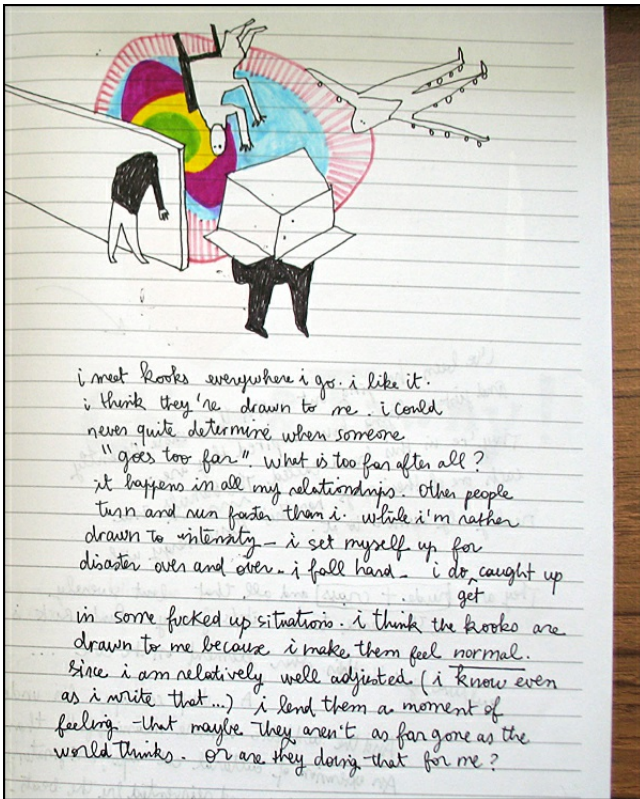 i meet kooks everywhere i go. i like it.
i think they're drawn to me. i could
never quite determine when someone
"goes too far". What is too far after all?
it happens in all my relationships. Other people
turn and run faster than i. while i'm rather
drawn to intensity - i set myself up for
disaster over and over - i fall hard - i do get caught up
in some fucked up situations. i think the kooks are
drawn to me because i make them feel normal.
since i am relatively well adjusted (i know even
as i write that...) i lend them a moment of
feeling that maybe they aren't as far gone as the
world thinks. or are they doing that for me?